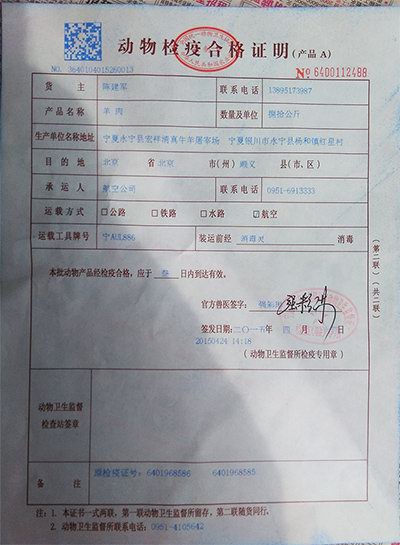 动物检疫合格证明(产品A)
NO. 3640104015260013
№ 6400112488
货主 陈建军 联系电话 13895173987
产品名称 羊肉 数量及单位 捌拾公斤
生产单位名称地址 宁夏永宁县宏祥清真牛羊屠宰场 宁夏银川市永宁县杨和镇红星村
目的地 北京 省 北京 市(州) 顺义 县(市、区)
承运人 航空公司 联系电话 0951-6913333
运载方式 □公路 □铁路 □水路 ☑航空
运载工具牌号 宁AUL886 装运前经 消毒灵 消毒
本批动物产品经检疫合格,应于 叁 日内到达有效。
官方兽医签字:
签发日期:二〇一五年 四月 日
20150424 14:18
(动物卫生监督所检疫专用章)
(第二联)(共二联)
动物卫生监督
检查站签章
备注 原检疫证号: 6401968586 6401968585
注:1. 本证书一式两联,第一联动物卫生监督所留存,第二联随货同行。
2. 动物卫生监督所联系电话: 0951-4105642